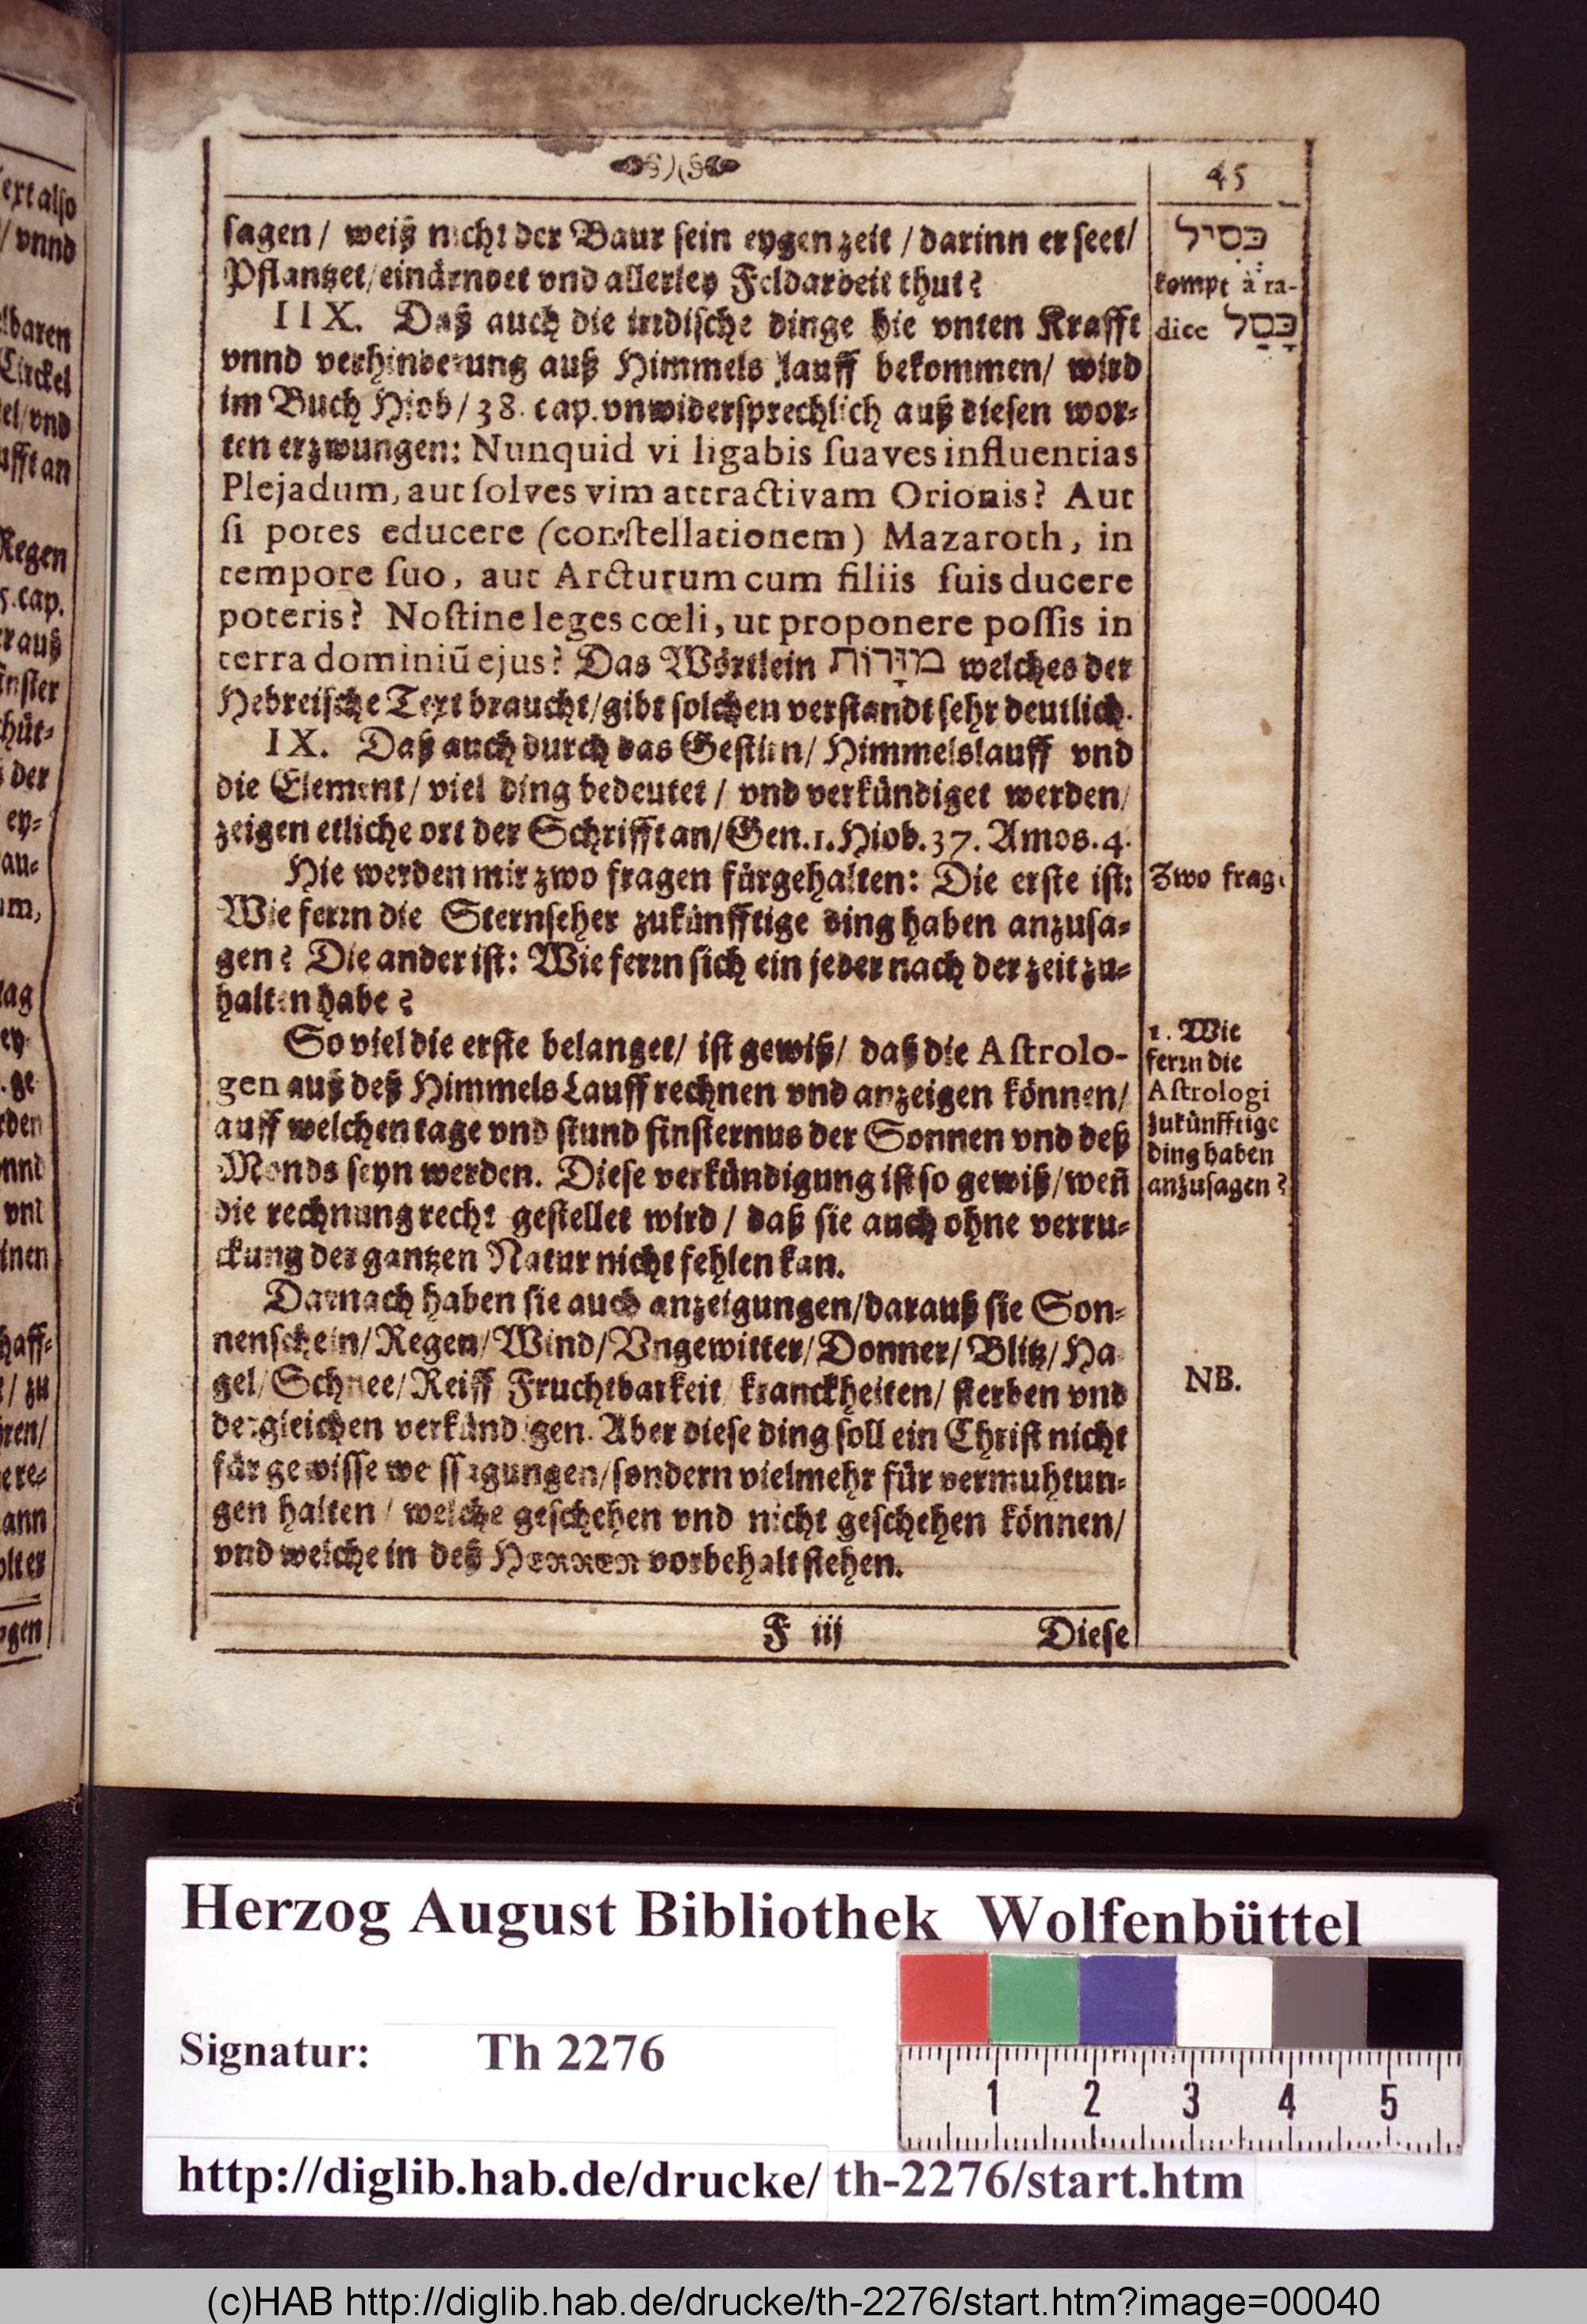 45
sagen / weiß nicht der Baur sein eygen zeit / darinn er seet/
Pflantzet/einärndet vnd allerley Feldarbeit thut?
IIX. Daß auch die irrdische dinge hie vnten Krafft
vnnd verhinderung auß Himmels lauff bekommen/ wird
im Buch Hiob/38. cap. vnwidersprechlich auß diesen wor-
ten erzwungen: Nunquid vi ligabis ſuaves influentias
Plejadum, aut ſolves vim attractivam Orionis? Aut
ſi potes educere (conſtellationem) Mazaroth, in
tempore ſuo, aut Arcturum cum filiis ſuis ducere
poteris? Noſtine leges cœli, ut proponere poſſis in
terra dominiũ ejus? Das Wörtlein מזרות welches der
Hebreische Text braucht/gibt solchen verstandt sehr deutlich.
IX. Daß auch durch das Gestirn/ Himmelslauff vnd
die Element/ viel ding bedeutet / vnd verkündiget werden/
zeigen etliche ort der Schrifft an/Gen.1.Hiob.37. Amos.4.
Hie werden mir zwo fragen fürgehalten: Die erste ist:
Wie ferrn die Sternseher zukünfftige ding haben anzusa-
gen? Die ander ist: Wie ferrn sich ein jeder nach der zeit zu-
halten habe?
So viel die erste belanget/ ist gewiß/ daß die Aſtrolo-
gen auß deß Himmels Lauff rechnen vnd anzeigen können/
auff welchen tage vnd stund finsternus der Sonnen vnd deß
Monds seyn werden. Diese verkündigung ist so gewiß/weñ
die rechnung recht gestellet wird / daß sie auch ohne verru-
ckung der gantzen Natur nicht fehlen kan.
Darnach haben sie auch anzeigungen/darauß sie Son-
nenschein/Regen/Wind/Vngewitter/Donner/Blitz/Ha-
gel/Schnee/Reiff Fruchtbarkeit kranckheiten/ sterben vnd
dergleichen verkündigen. Aber diese ding soll ein Christ nicht
für gewisse weissagungen/sondern vielmehr für vermuhtun-
gen halten / welche geschehen vnd nicht geschehen können/
vnd welche in deß HERREN vorbehalt stehen.
F iij Diese
כסיל
kompt à ra-
dice כָּסַל
Zwo frag.
1. Wie
ferrn die
Aſtrologi
zukünfftige
ding haben
anzusagen?
NB.
ext also
/ vnnd
lbaren
Circkel
el/vnd
ufft an
Regen
cap.
r auß
inster
hüt-
der
ey-
au-
m,
ag
ey
ge
rden
nnd
vnt
inen
haff-
/ zu
ren/
ere-
ann
olter
gen
Herzog August Bibliothek Wolfenbüttel
Signatur: Th 2276
1 2 3 4 5
http://diglib.hab.de/drucke/ th-2276/start.htm
(c)HAB http://diglib.hab.de/drucke/th-2276/start.htm?image=00040